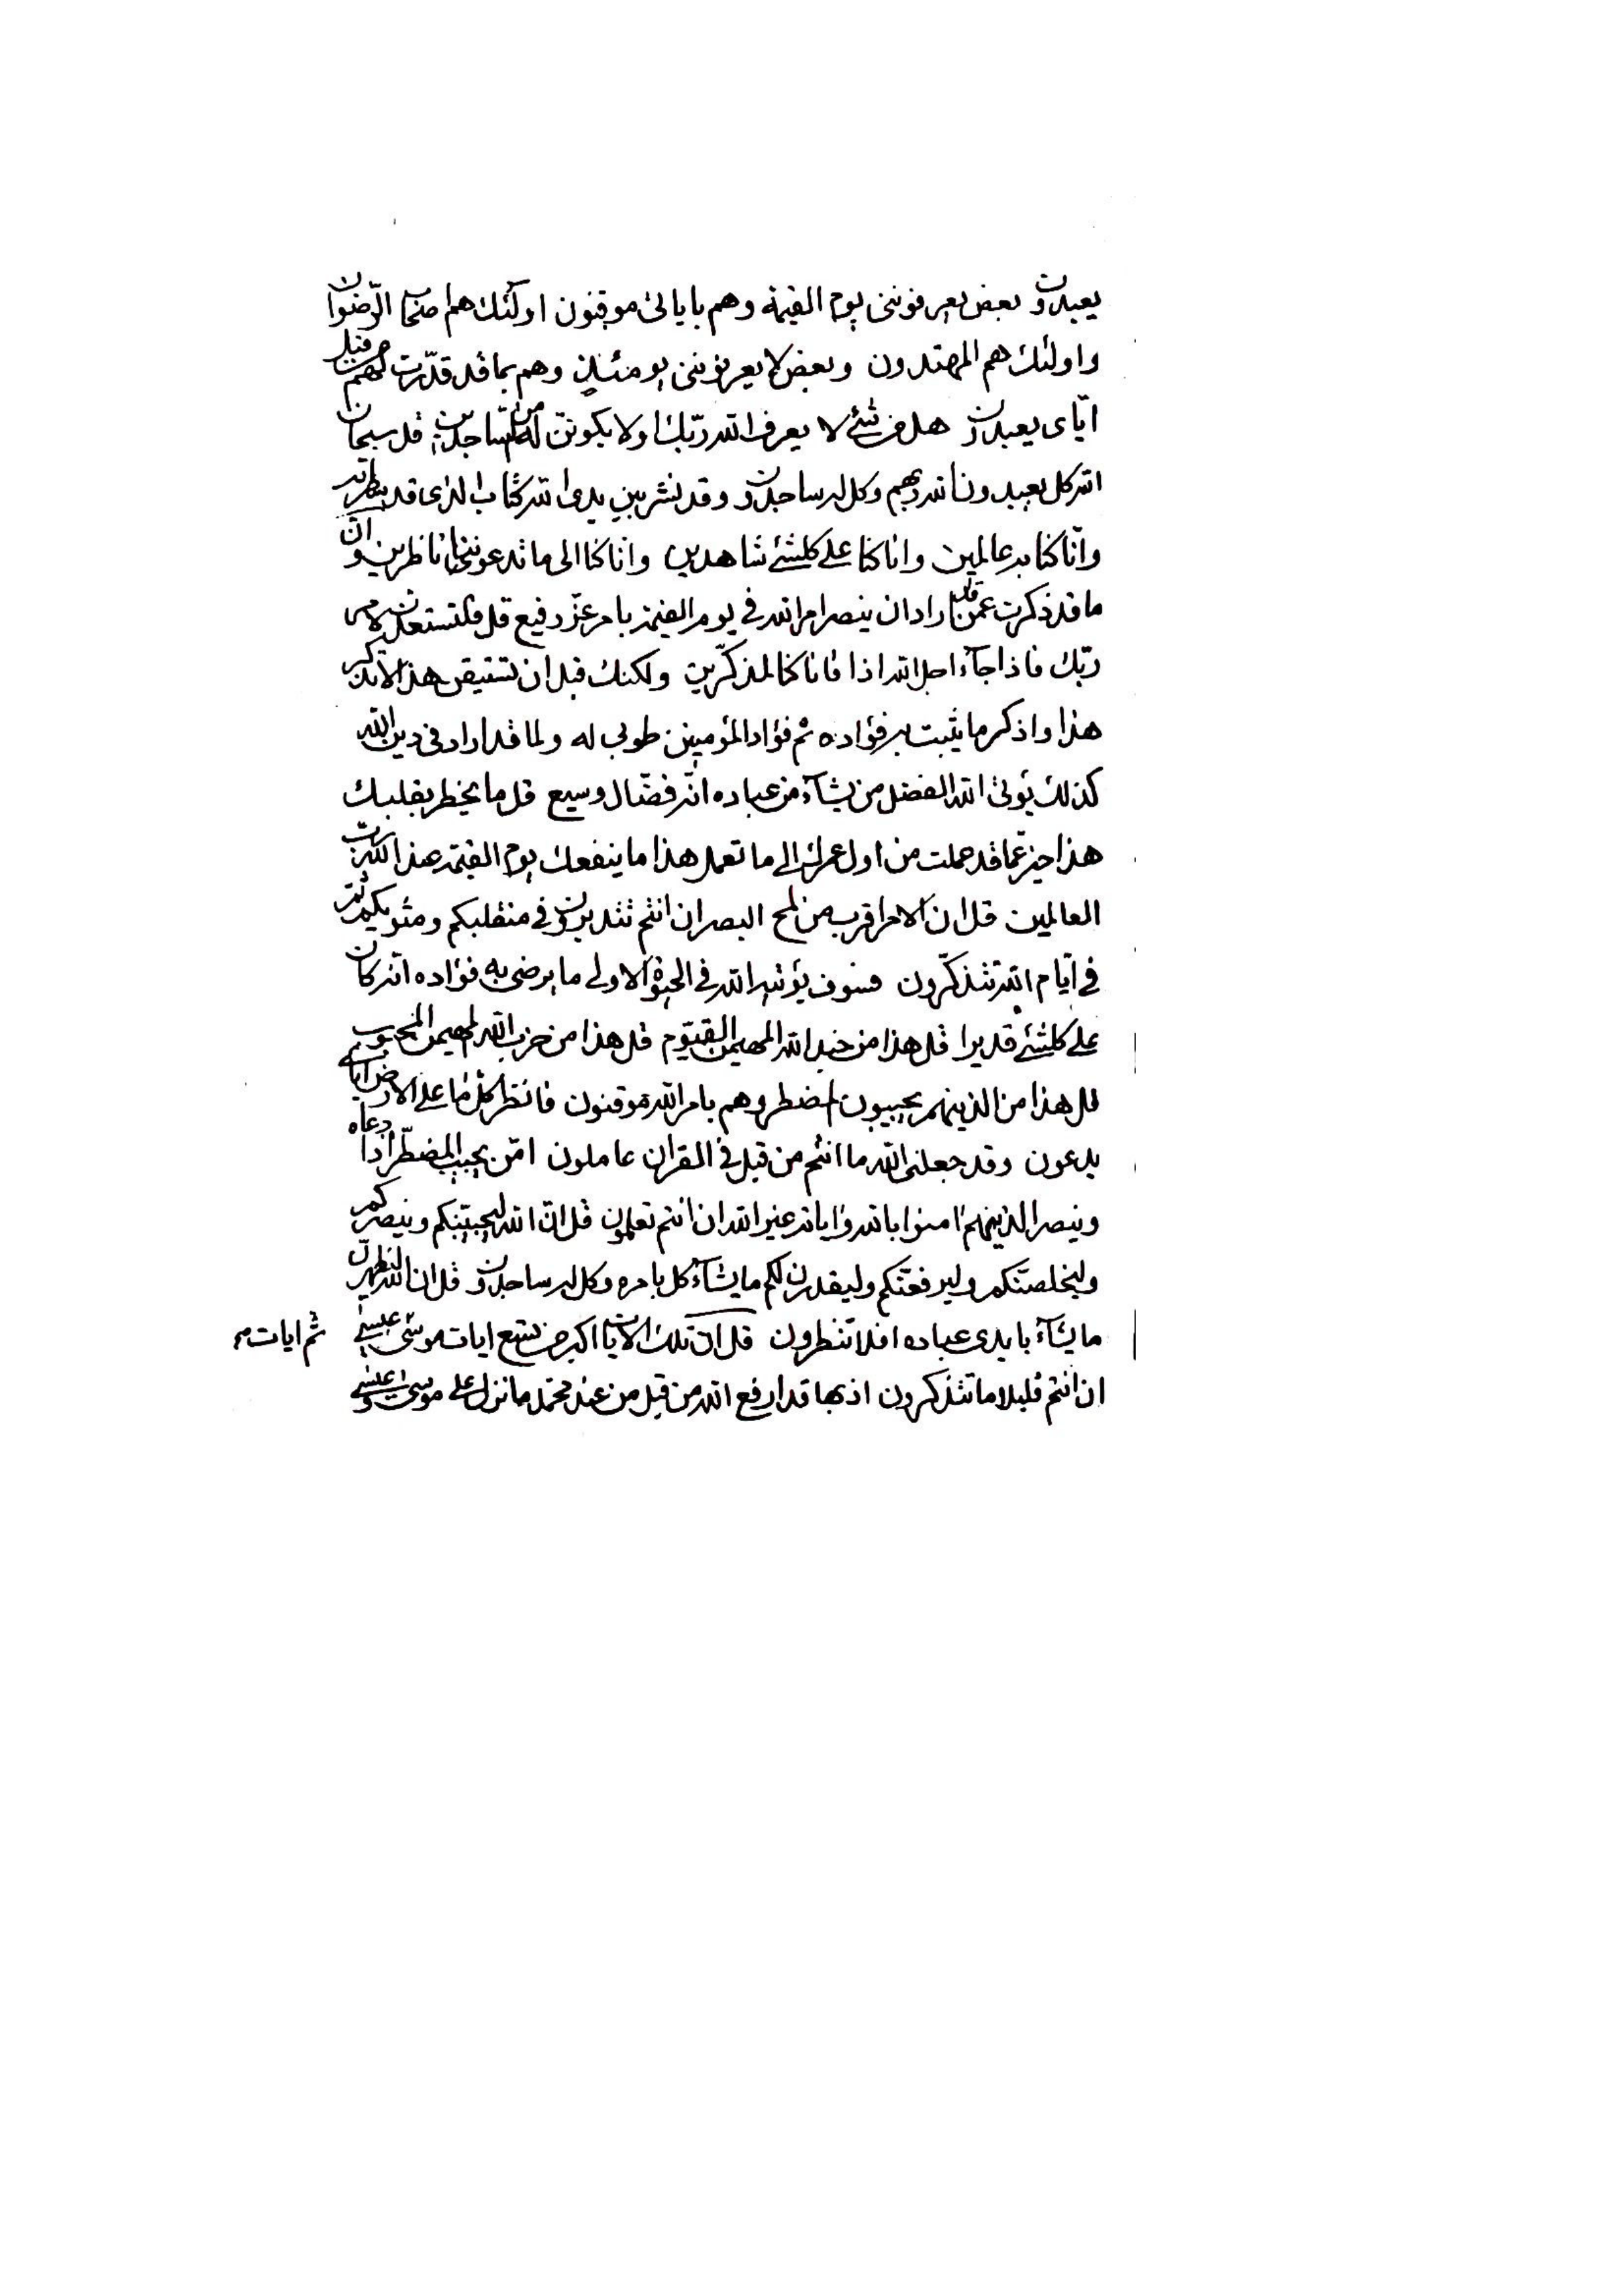 يعبدون وبعض يعرفونني يوم القيمة وهم باياتى موقنون اولئك هم اصحاب الرّضوان
واولئك هم المهتدون وبعض لا يعرفونني يومئذ وهم بما قد قدّرت لهم من قبل
ايّاى يعبدون هل من شئ لا يعرف الله ربّك او لا يكوننّ له لمن السّاجدين قل سبحان
الله كل يعبدون الله ربهم وكل له ساجدون وقد نشر بين يدى الله كتاب الذى قد
وانّا كنا به عالمين وانا كنا على كلشئ شاهدين وانا كنا الى ما تدعونني ناظرين وان
ما قد ذكرت عمن قد اراد ان ينصر امر الله في يوم القيمة بامر عزّ رفيع قل فلتستعدن لامر
ربّك فاذا جآء اجل الله اذا فانا كنا لمذكّرين ولكنك قبل ان تستيقن هذا لا تذكر
هذا واذكر ما يثبت به فؤاده ثم فؤاد المؤمنين طوبى له ولما قد اراد في دين الله
كذلك يؤتى الله الفضل من يشآء من عباده انّه فضّال وسيع قل ما يخطر بقلبك
هذا خير عمّا قد عملت من اول عمرك الى ما تعمل هذا ما ينفعك يوم القيمة عند الله ربّ
العالمين قل ان الامر اقرب من لمح البصر ان انتم تتدبرون في منقلبكم ومثويكم ثمّ
في ايّام الله تتذكّرون فسوف يؤتيه الله في الحيوة الاولى ما يرضى به فؤاده انّه كان
على كلشئ قديرا قل هذا من جند الله المهيمن القيّوم قل هذا من حزب الله المهيمن المحبوب
قل هذا من الذينهم يجيبون المضطر وهم بامر الله موقنون فانظر كل ما على الارض اياى
يدعون وقد جعلنى الله ما انتم من قبل في القران عاملون امّن يجيب المضطّر اذا دعاه
وينصر الذينهم امنوا بالله واياته غير الله ان انتم تعلمون قل انّ الله ليجيبنّكم وينصركم
وليخلصنّكم وليرفعنّكم وليقدرن لكم ما يشآء كل بامره وكل له ساجدون قل ان الله ليظهرنّ
ما يشآء بايدى عباده افلا تنظرون قل انّ تلك الايات اكبر من تسع ايات موسى ثم ايات عيسى
ان انتم قليلا ما تتذكرون اذ بها قد ارفع الله من قبل من عند محمّد ما نزل على موسى وعيسى